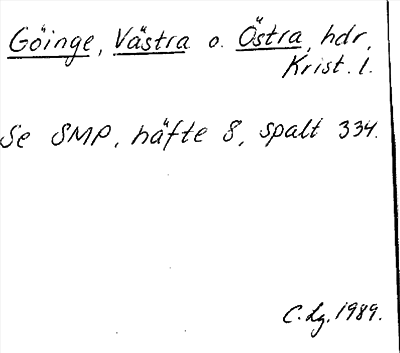 Göinge, Västra o. Östra, hdr,
Krist. l.
Se SMP, häfte 8, spalt 334.
C. Lg. 1989.